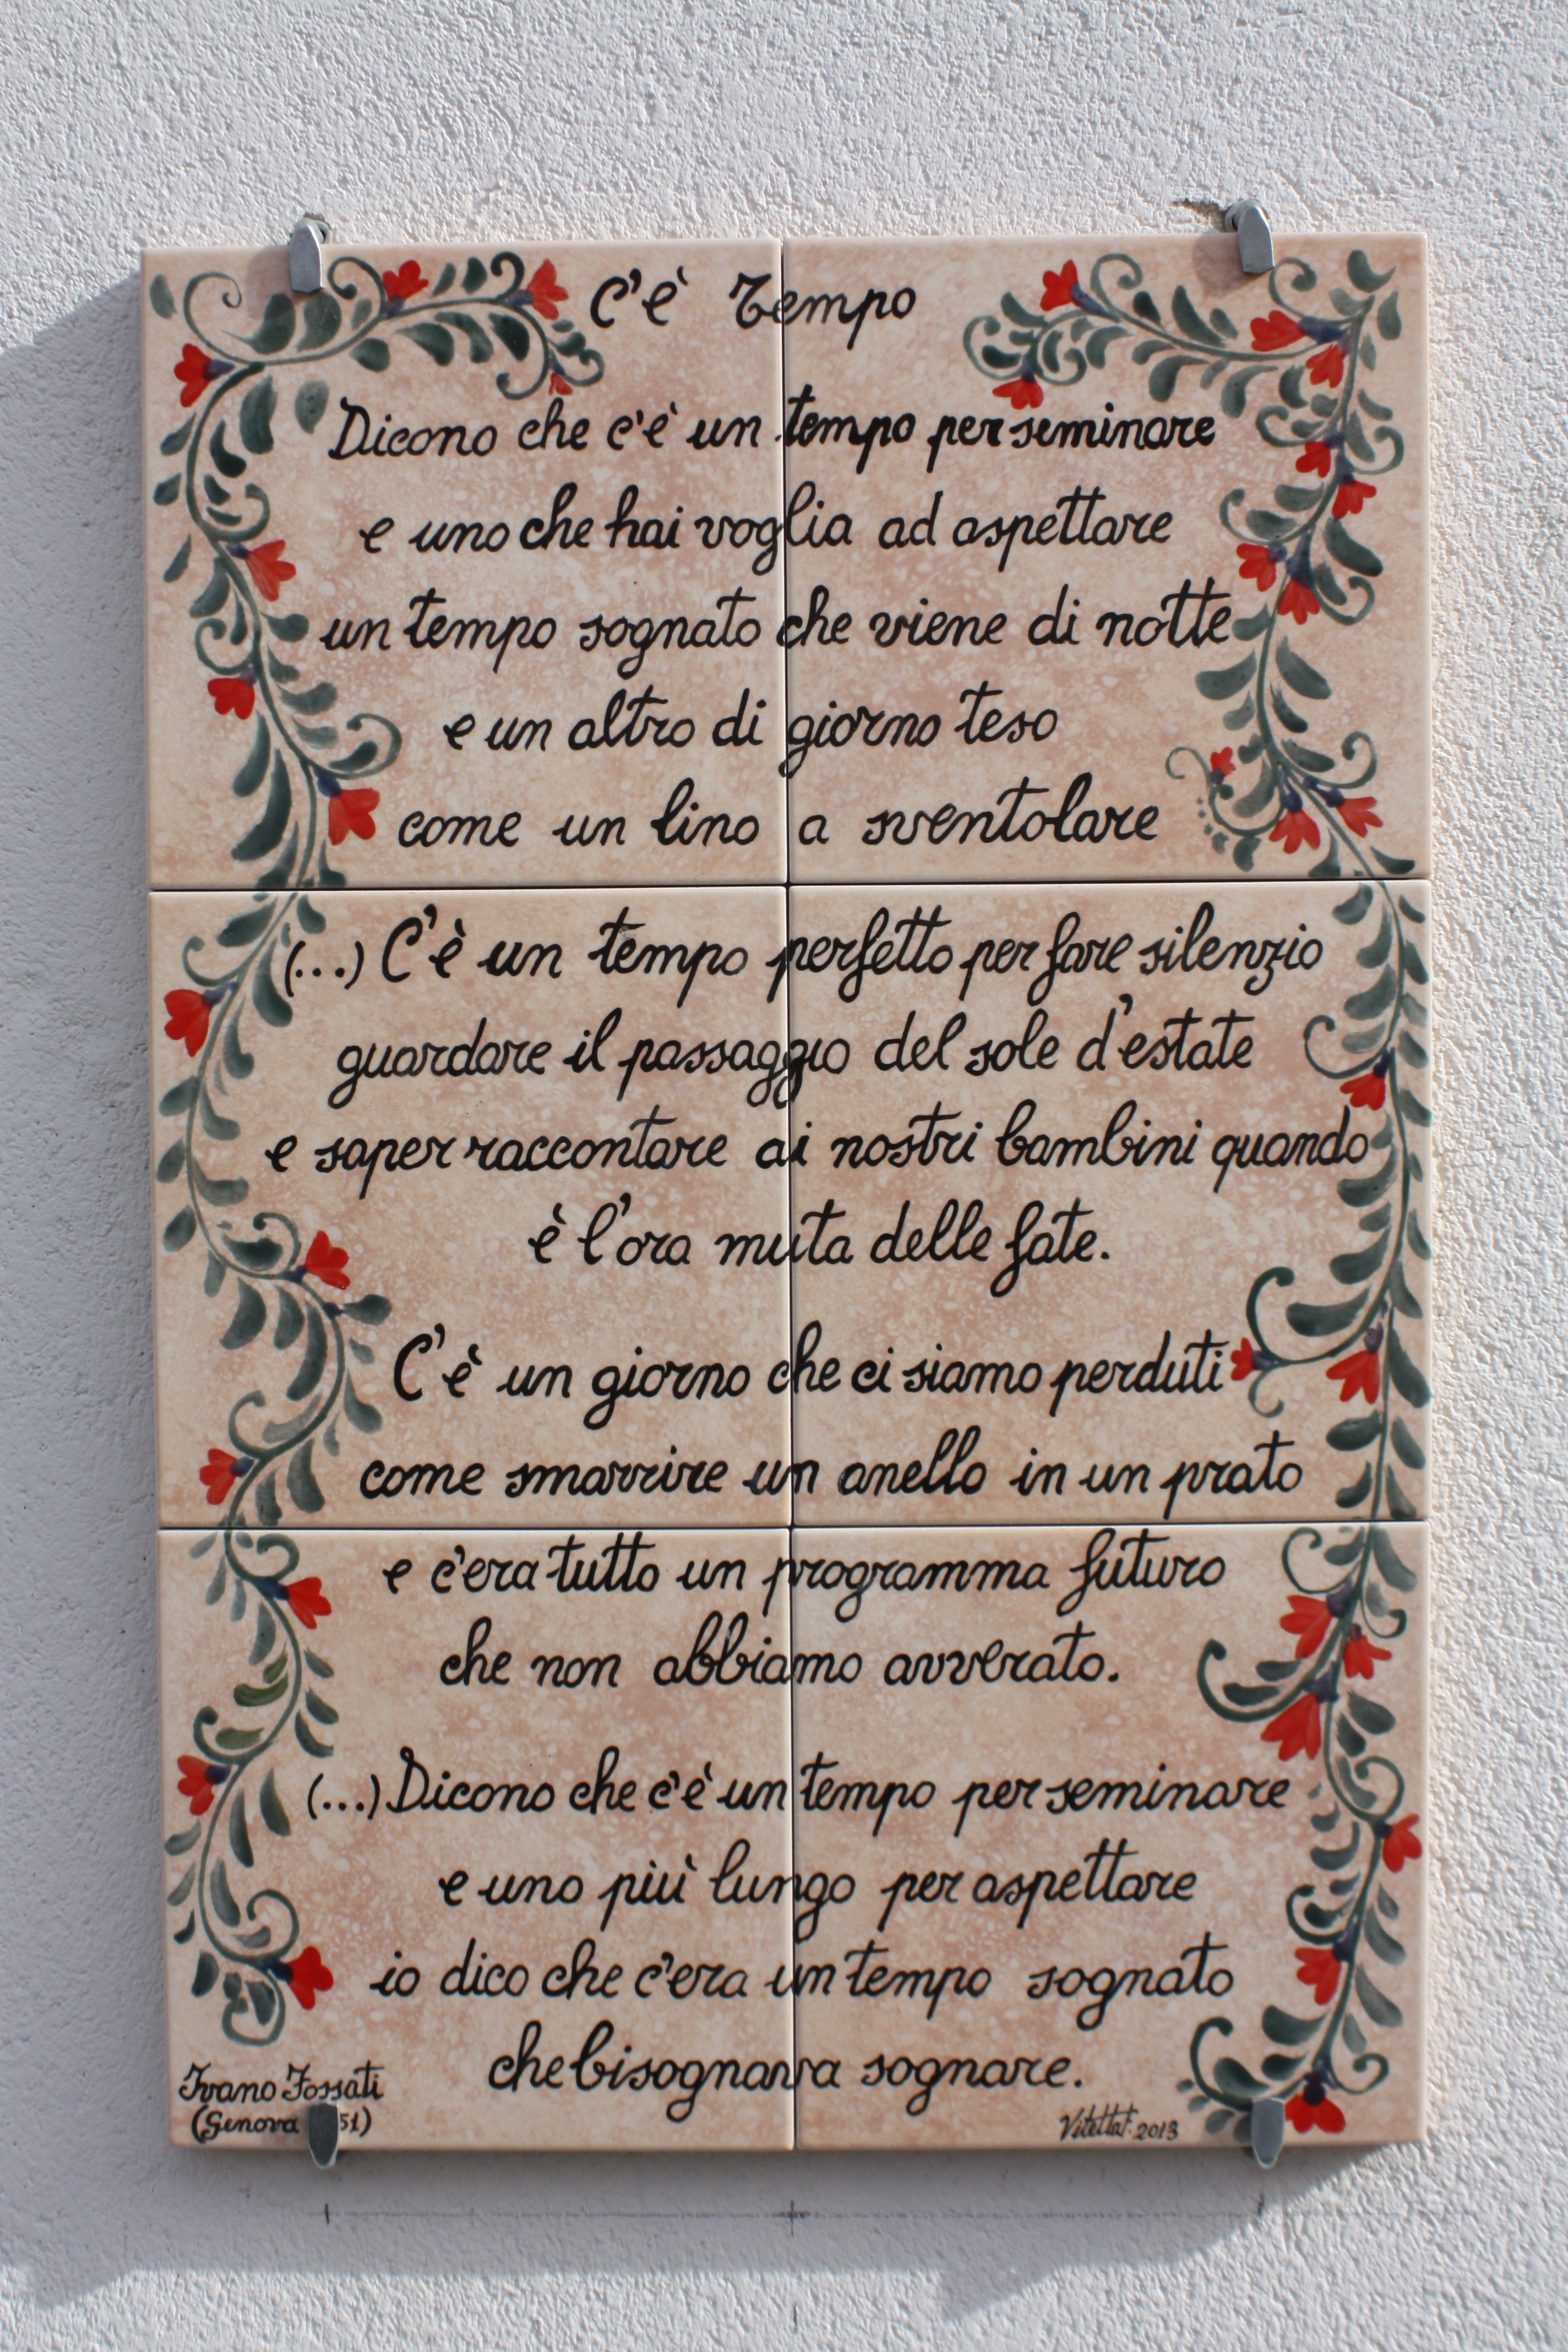 C'è Tempo
Dicono che c'è un tempo per seminare
e uno che hai voglia ad aspettare
un tempo sognato che viene di notte
e un altro di giorno teso
come un lino a sventolare
(...) C'è un tempo perfetto per fare silenzio
guardare il passaggio del sole d'estate
e saper raccontare ai nostri bambini quando
è l'ora muta delle fate.
C'è un giorno che ci siamo perduti
come smarrire un anello in un prato
e c'era tutto un programma futuro
che non abbiamo avverato.
(...) Dicono che c'è un tempo per seminare
e uno più lungo per aspettare
io dico che c'era un tempo sognato
che bisognava sognare.
Ivano Fossati
(Genova 51)
Vitetta F. 2013